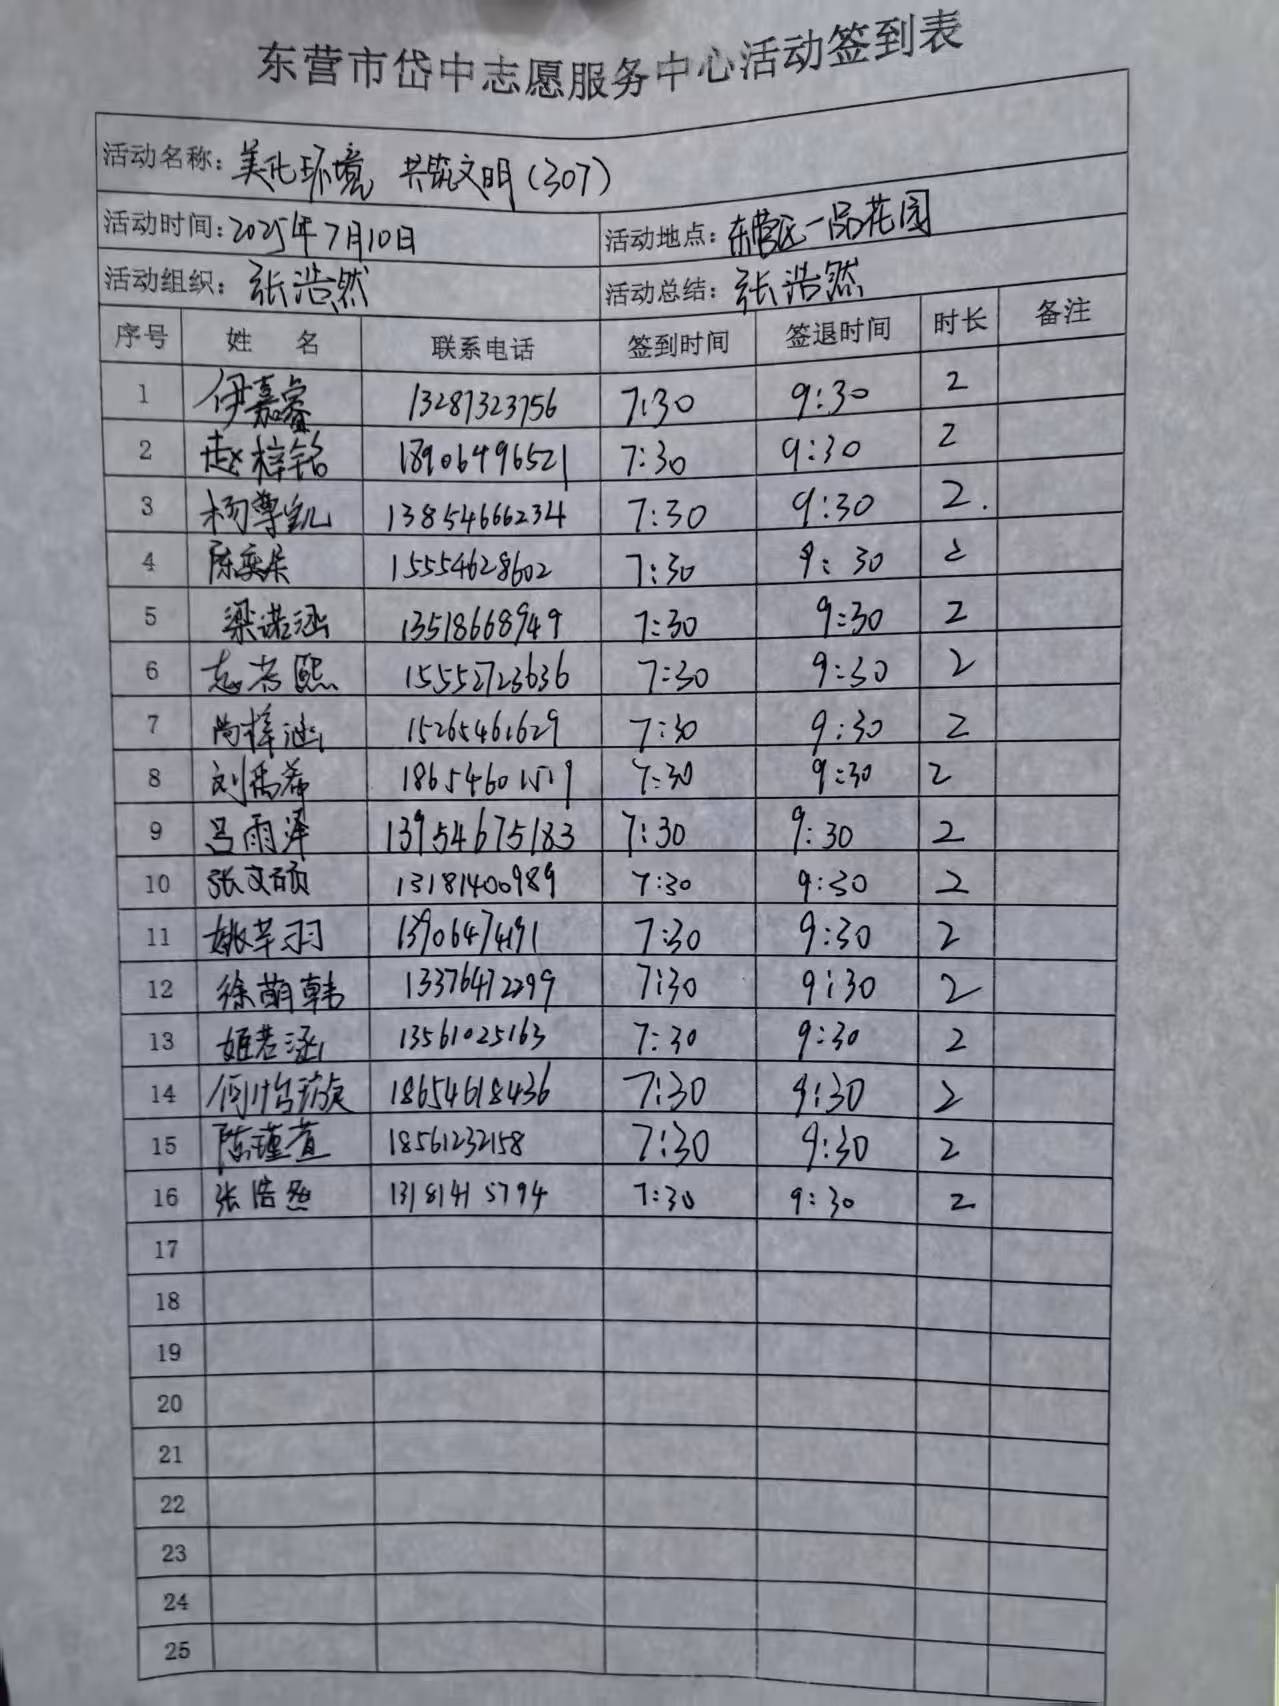 东营市岱中志愿服务中心活动签到表
活动名称：美化环境 共筑文明（307）
活动时间：2025年7月10日 活动地点：东营区一品花园
活动组织：张浩然 活动总结：张浩然
序号 姓名 联系电话 签到时间 签退时间 时长 备注
1 伊嘉睿 13287323756 7:30 9:30 2
2 赵梓铭 18906496521 7:30 9:30 2
3 杨尊凯 13854666234 7:30 9:30 2.
4 陈奕呆 15554628602 7:30 9:30 2
5 梁诺涵 13518668949 7:30 9:30 2
6 熙 15552723636 7:30 9:30 2
7 尚梓涵 15265461629 7:30 9:30 2
8 刘禹希 18654601519 7:30 9:30 2
9 吕雨泽 13954675183 7:30 9:30 2
10 张文硕 13181400989 7:30 9:30 2
11 姚芊羽 13906474191 7:30 9:30 2
12 徐萌韩 13376472299 7:30 9:30 2
13 姬若涵 13561025163 7:30 9:30 2
14 何怡璇 18654618436 7:30 9:30 2
15 陈瑾萱 18561232158 7:30 9:30 2
16 张浩然 13181415794 7:30 9:30 2
17
18
19
20
21
22
23
24
25